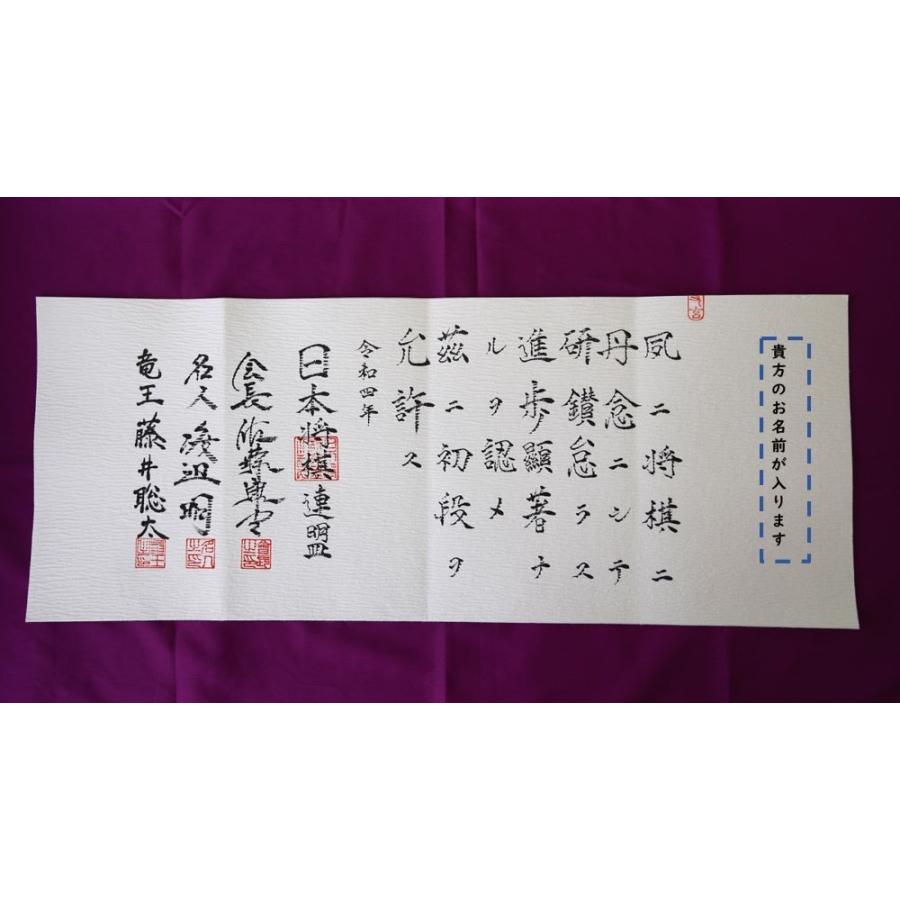 貴方のお名前が入ります
夙ニ将棋ニ
丹念ニシテ
研鑚怠ラス
進歩顯著ナ
ルヲ認メ
茲ニ初段ヲ
允許ス
令和四年
日本将棋連盟
会長 佐藤康光
名人 渡辺明
竜王 藤井聡太